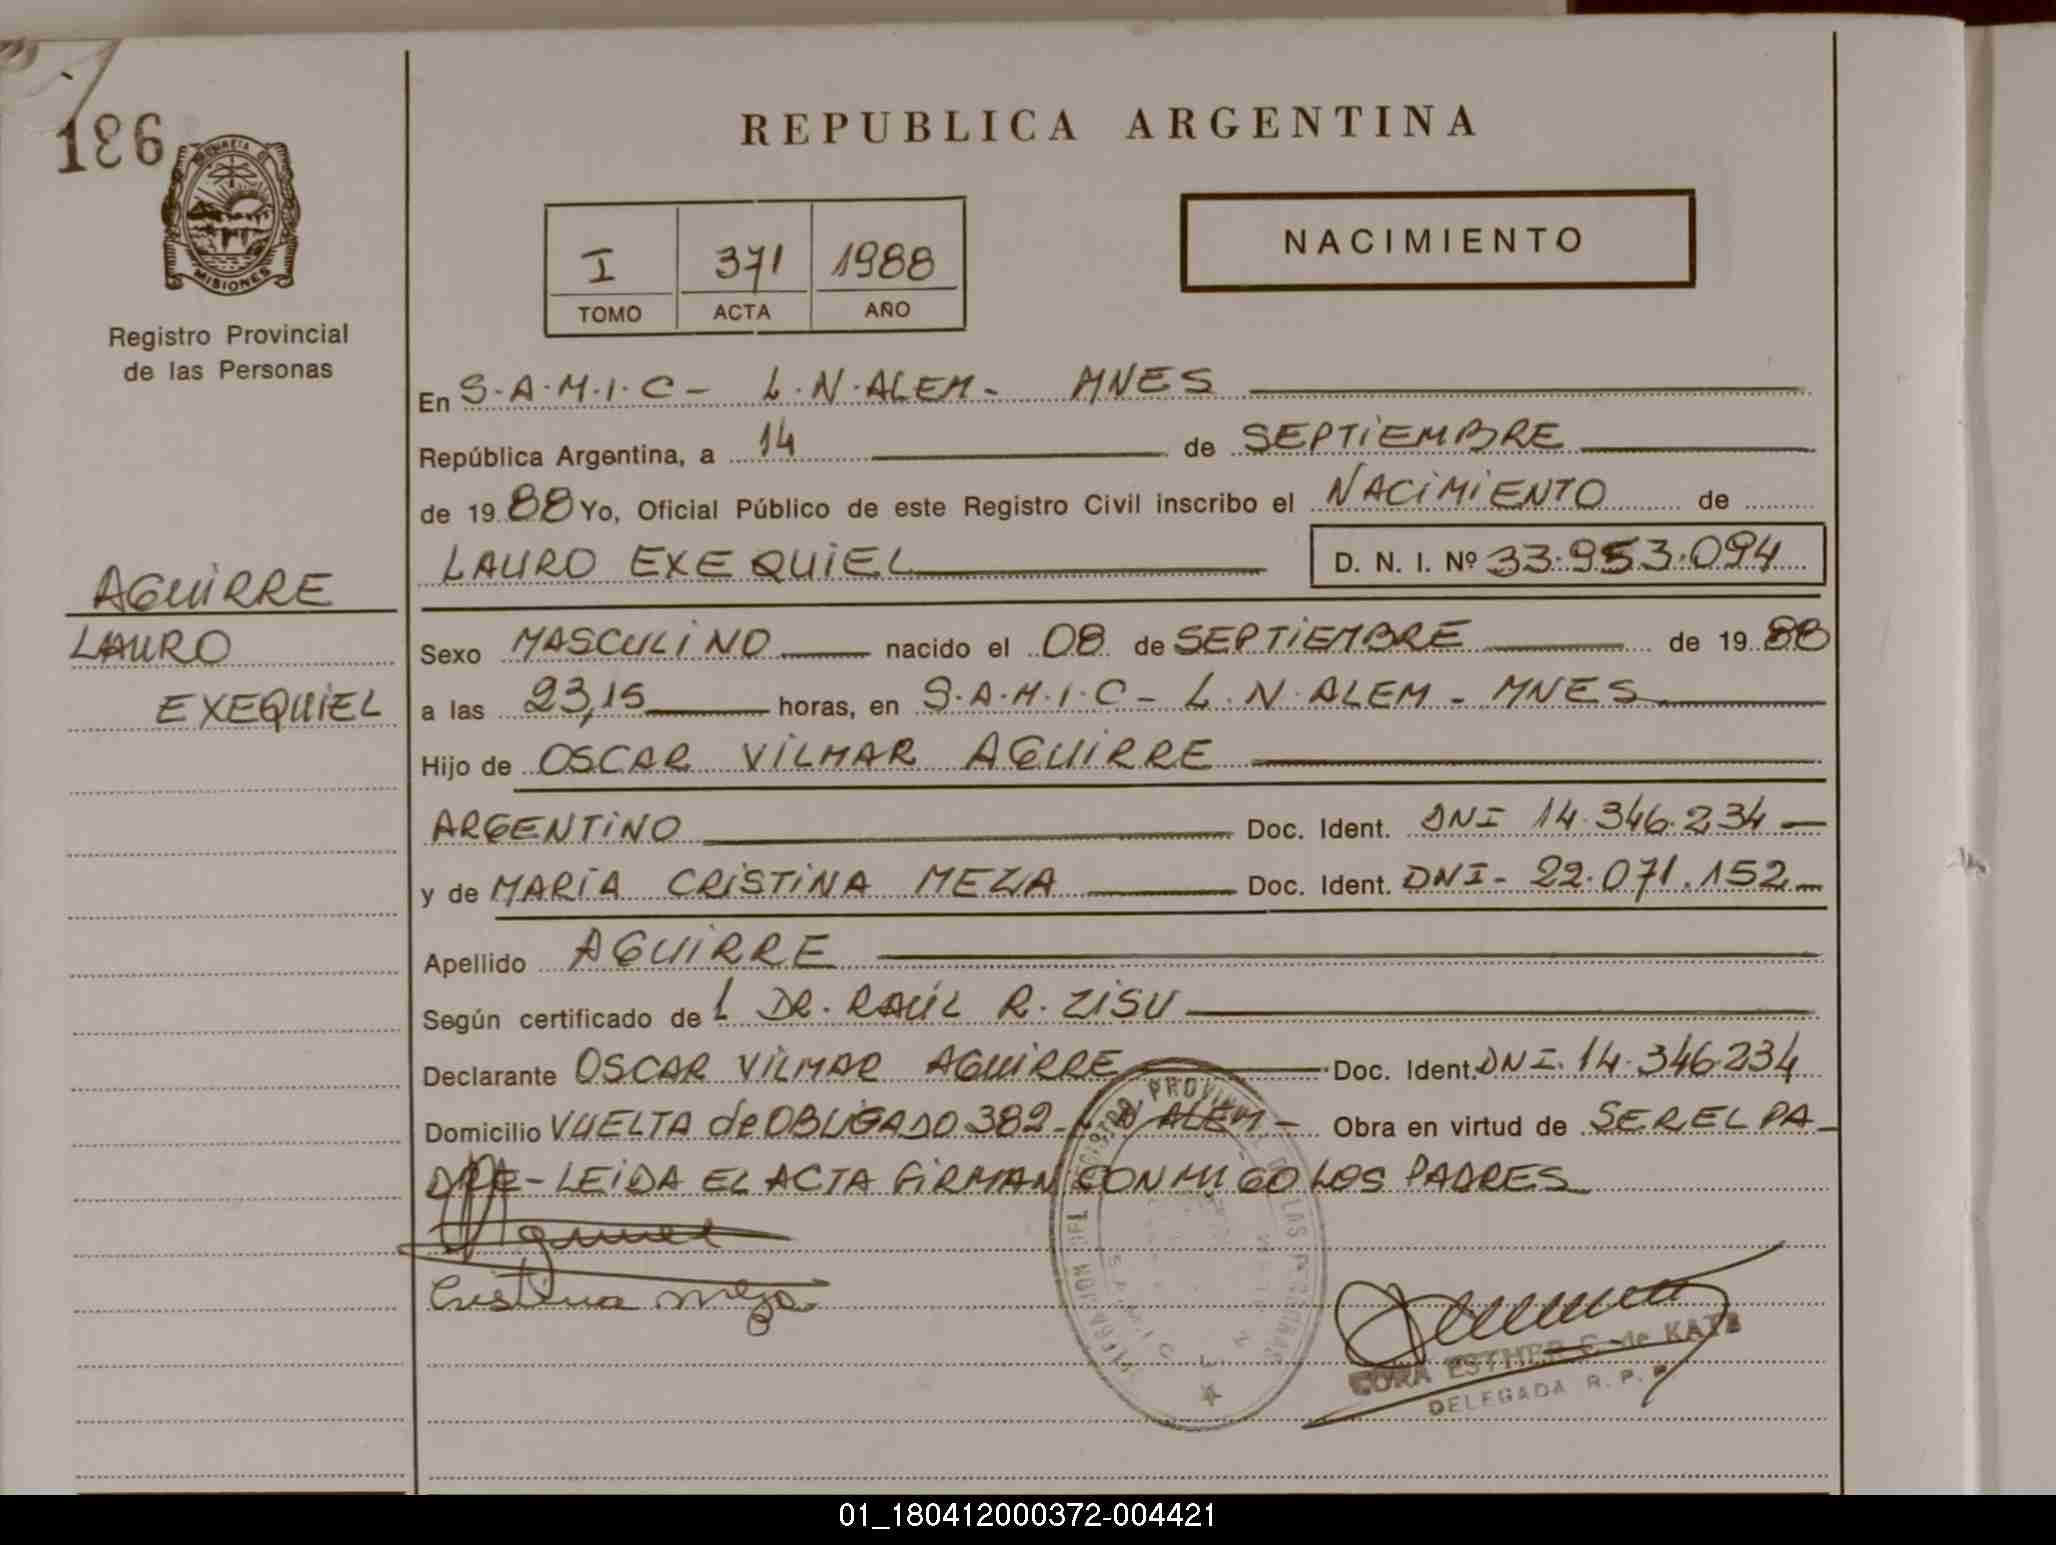 186
PROVINCIA DE
MISIONES
Registro Provincial
de las Personas
AGUIRRE
LAURO
EXEQUIEL
REPUBLICA ARGENTINA
I 371 1988
TOMO ACTA AÑO
NACIMIENTO
En S.A.M.I.C - L.N.ALEM - MNES
República Argentina, a 14 de SEPTIEMBRE
de 1988 Yo, Oficial Público de este Registro Civil inscribo el NACIMIENTO de
LAURO EXEQUIEL D. N. I. Nº 33.953.094
Sexo MASCULINO nacido el 08 de SEPTIEMBRE de 1988
a las 23,15 horas, en S.A.M.I.C - L.N.ALEM - MNES
Hijo de OSCAR VILMAR AGUIRRE
ARGENTINO Doc. Ident. DNI 14.346.234
y de MARÍA CRISTINA MEZA Doc. Ident. DNI - 22.071.152
Apellido AGUIRRE
Según certificado de l DR. RAÚL R. ZISU
Declarante OSCAR VILMAR AGUIRRE Doc. Ident. DNI. 14.346.234
Domicilio VUELTA de OBLIGADO 382 - ALEM - Obra en virtud de SER EL PA-
DRE - LEIDA EL ACTA FIRMAN CONMIGO LOS PADRES
Cristina Meza
DELEGACION DEL REGISTRO PROVINCIAL DE LAS PERSONAS
CORA ESTHER C. de KATZ
DELEGADA R. P. P.
01_180412000372-004421